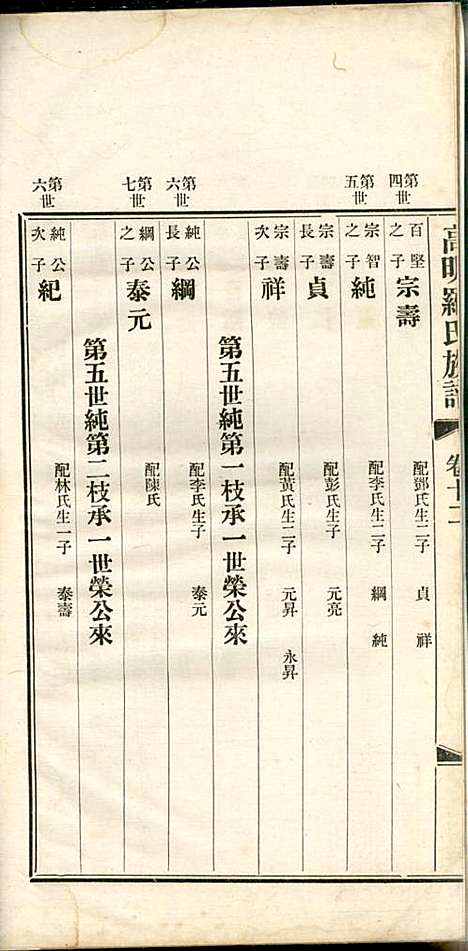 高明羅氏族譜 卷十二
第四世 百堅之子 宗壽 配鄧氏生二子 貞 祥
第五世 宗智之子 純 配李氏生二子 綱 純
宗壽長子 貞 配彭氏生子 元亮
宗壽次子 祥 配黃氏生二子 元昇 永昇
第五世純第一枝承一世榮公來
第六世 純公長子 綱 配李氏生子 泰元
第七世 綱公之子 泰元 配陳氏
第五世純第二枝承一世榮公來
第六世 純公次子 紀 配林氏生一子 泰壽